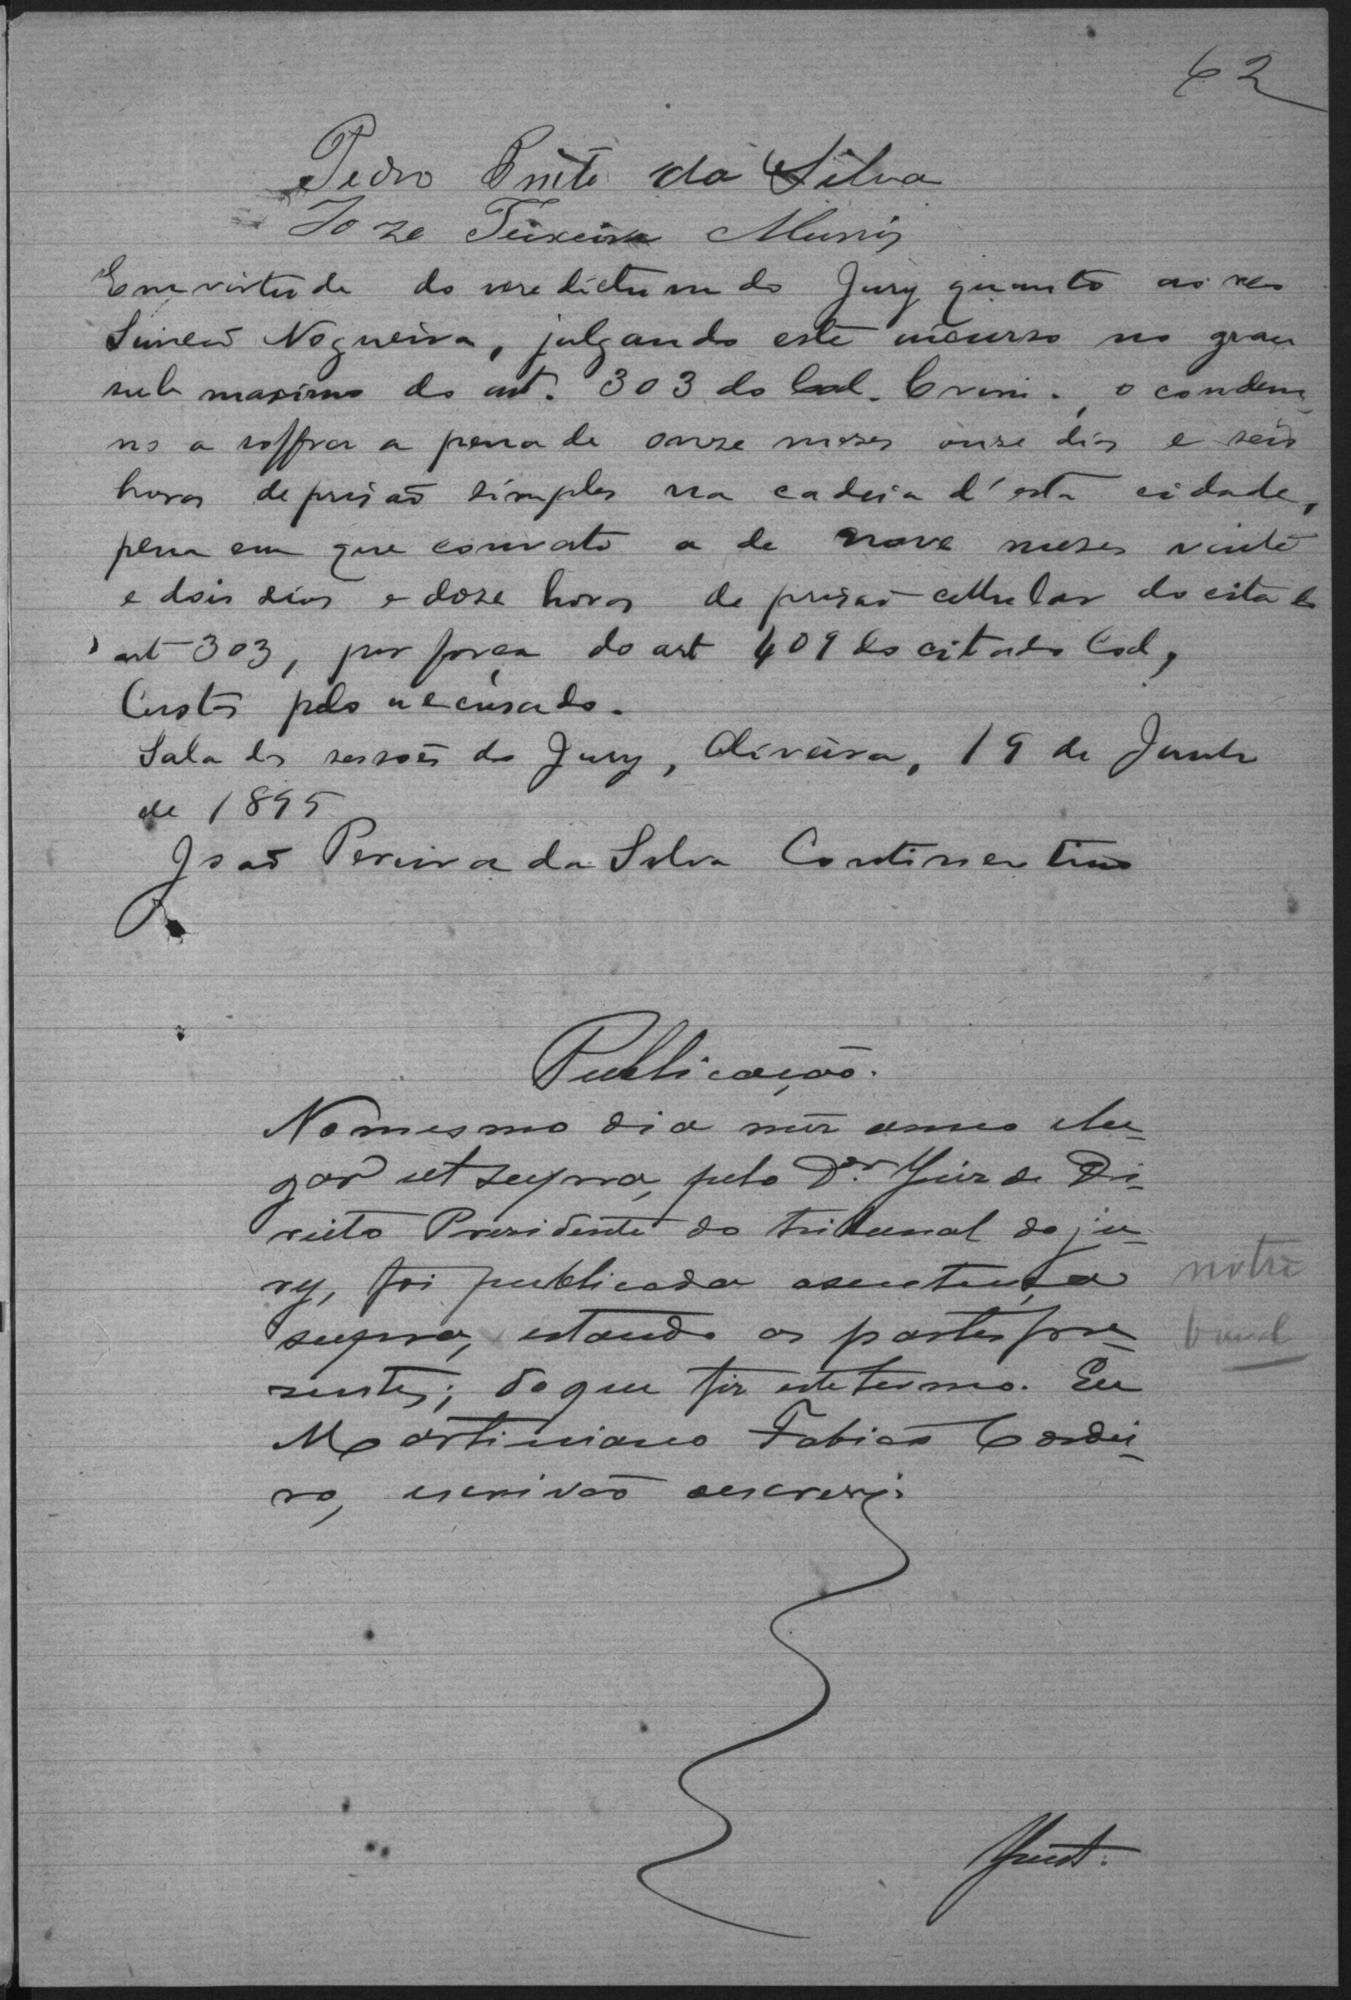 62
Pedro da Silva
Joze Teixeira Munis
Em virtude do veredictum do Jury quanto ao reo
Simeão Nogueira, julgando este incurso no grau
sub maximo do art. 303 do Cod. Crim., o condem-
no a soffrer a pena de onze mezes onze dias e seis
horas de prisão simples na cadeia d'esta cidade,
pena em que converto a de nove mezes vinte
e dois dias e doze horas de prisão cellular do citado
art 303, por força do art 409 do citado Cod,
Custas pelo accusado.
Sala das sessões do Jury, Oliveira, 19 de Junho
de 1895
João Pereira da Silva Continentino
Publicação.
No mesmo dia mez anno e lu-
gar ut supra, pelo Dr. Juiz de Di-
reito Presidente do tribunal do ju-
ry, foi publicada a sentença
supra, estando as partes pre-
sentes; do que fiz este termo. Eu
Martiniano Fabião Cordei-
ro, escrivão o escrevi.